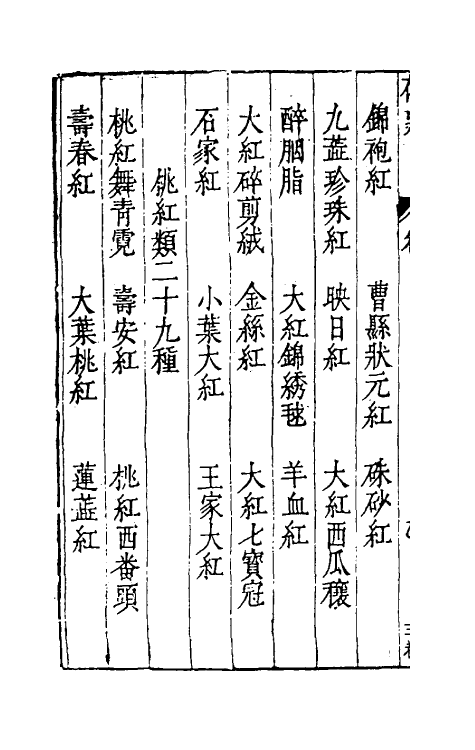 錦袍紅 曹縣狀元紅 硃砂紅
九蕋珍珠紅 映日紅 大紅西瓜穰
醉胭脂 大紅錦綉毬 羊血紅
大紅碎剪絨 金絲紅 大紅七寳冠
石家紅 小葉大紅 王家大紅
桃紅類二十九種
桃紅舞青霓 壽安紅 桃紅西番頭
壽春紅 大葉桃紅 蓮蕋紅